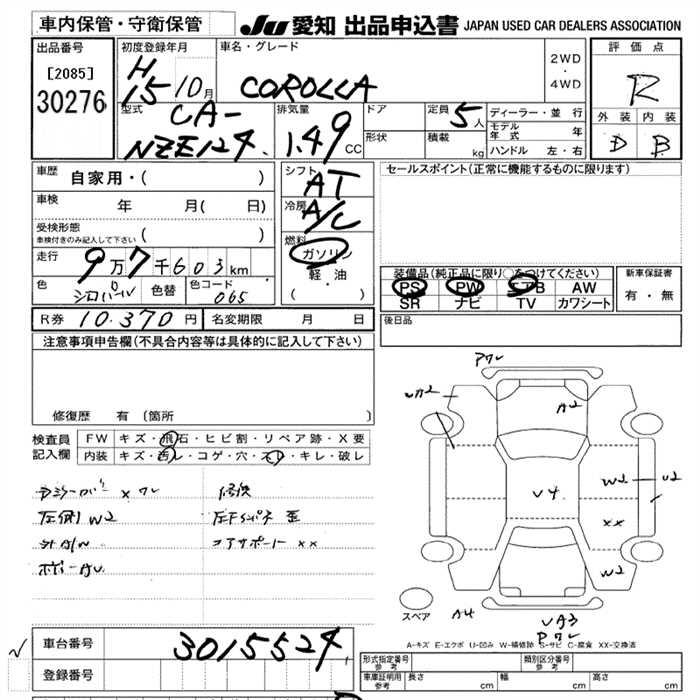 車内保管・守衛保管
JU 愛知 出品申込書 JAPAN USED CAR DEALERS ASSOCIATION
出品番号
[2085]
30276
初度登録年月
H
15 10月
車名・グレード
COROLLA
2WD
・
4WD
評価点
R
外装 内装
D B
型式
CA-
NZE124.
排気量
1.49 CC
ドア
形状
定員 5人
積載 kg
ディーラー・並行
モデル年式 年
ハンドル 左・右
車歴 自家用・( )
車検 年 月( 日)
受検形態
車検付きのみ記入して下さい ( )
走行 9万7千603km
色
色替
色コード 065
シフト AT
冷房 A/C
燃料
ガソリン
軽・油
・( )
セールスポイント(正常に機能するものに限ります)
装備品(純正品に限り○をつけてください)
PS PW エアB AW
SR ナビ TV カワシート
新車保証書
有・無
R券 10.370円 名変期限 月 日
後日品
注意事項申告欄(不具合内容等は具体的に記入して下さい)
修復歴 有 (箇所
検査員
記入欄
FW キズ・飛石・ヒビ割・リペア跡・X要
内装 キズ・西レ・コゲ・穴・スレ・キレ・破レ
左側 W2
コアサポート xx
A2
W2
U2
V4
xx
W2
スペア
A4
A-キズ E-エクボ U-凹み W-補修跡 S-サビ C-腐食 XX-交換済
車台番号 3015524
登録番号
形式指定番号 参考
類別区分番号 参考
車庫証明用 参考 長さ cm 幅 cm 高さ cm